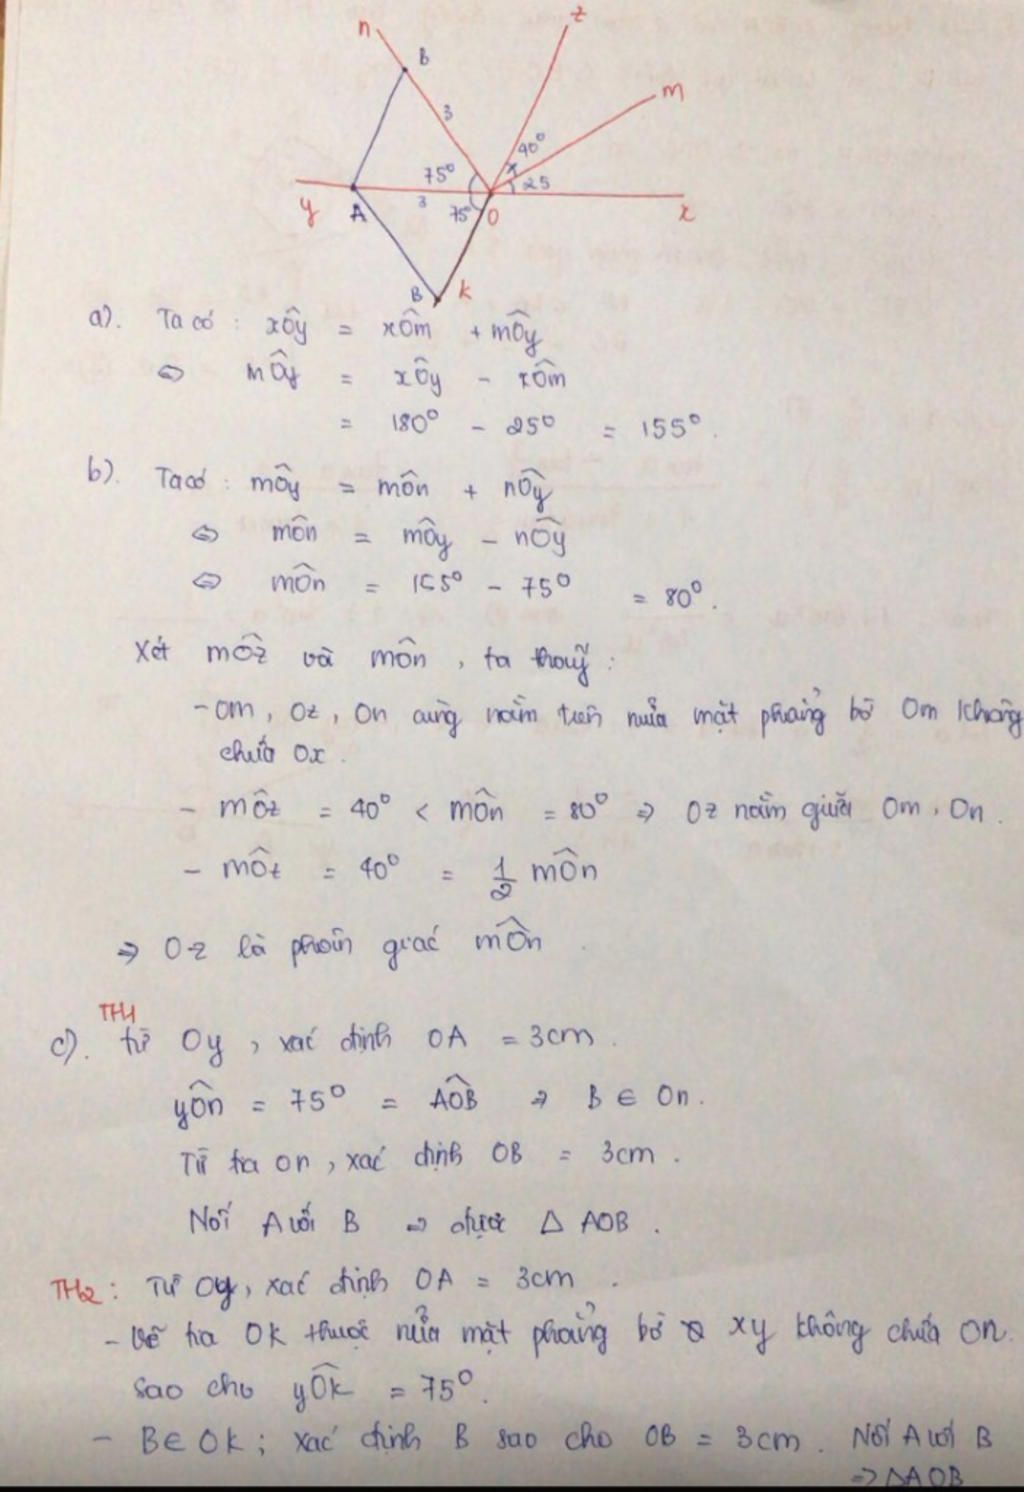 n
z
B
m
3
40°
75°
25
y
A
3
75°
O
x
B
k
a). Ta có : xÔy = xÔm + mÔy
⇔ mÔy = xÔy - xÔm
= 180° - 25° = 155°.
b). Ta có : mÔy = mÔn + nÔy
⇔ mÔn = mÔy - nÔy
⇔ mÔn = 155° - 75° = 80°.
Xét mÔz và mÔn, ta thấy :
- Om, Oz, On cùng nằm trên nửa mặt phẳng bờ Om không
chứa Ox.
- mÔz = 40° < mÔn = 80° ⇒ Oz nằm giữa Om, On.
- mÔz = 40° = 1/2 mÔn
⇒ Oz là phân giác mÔn.
TH1
c). từ Oy, xác định OA = 3cm.
yÔn = 75° = AÔB ⇒ B ∈ On.
Từ tia On, xác định OB = 3cm.
Nối A với B ⇒ được Δ AOB.
TH2 : Từ Oy, xác định OA = 3cm.
- Vẽ tia OK thuộc nửa mặt phẳng bờ xy không chứa On.
sao cho yÔk = 75°.
- B ∈ OK ; xác định B sao cho OB = 3cm. Nối A với B
⇒ ΔAOB